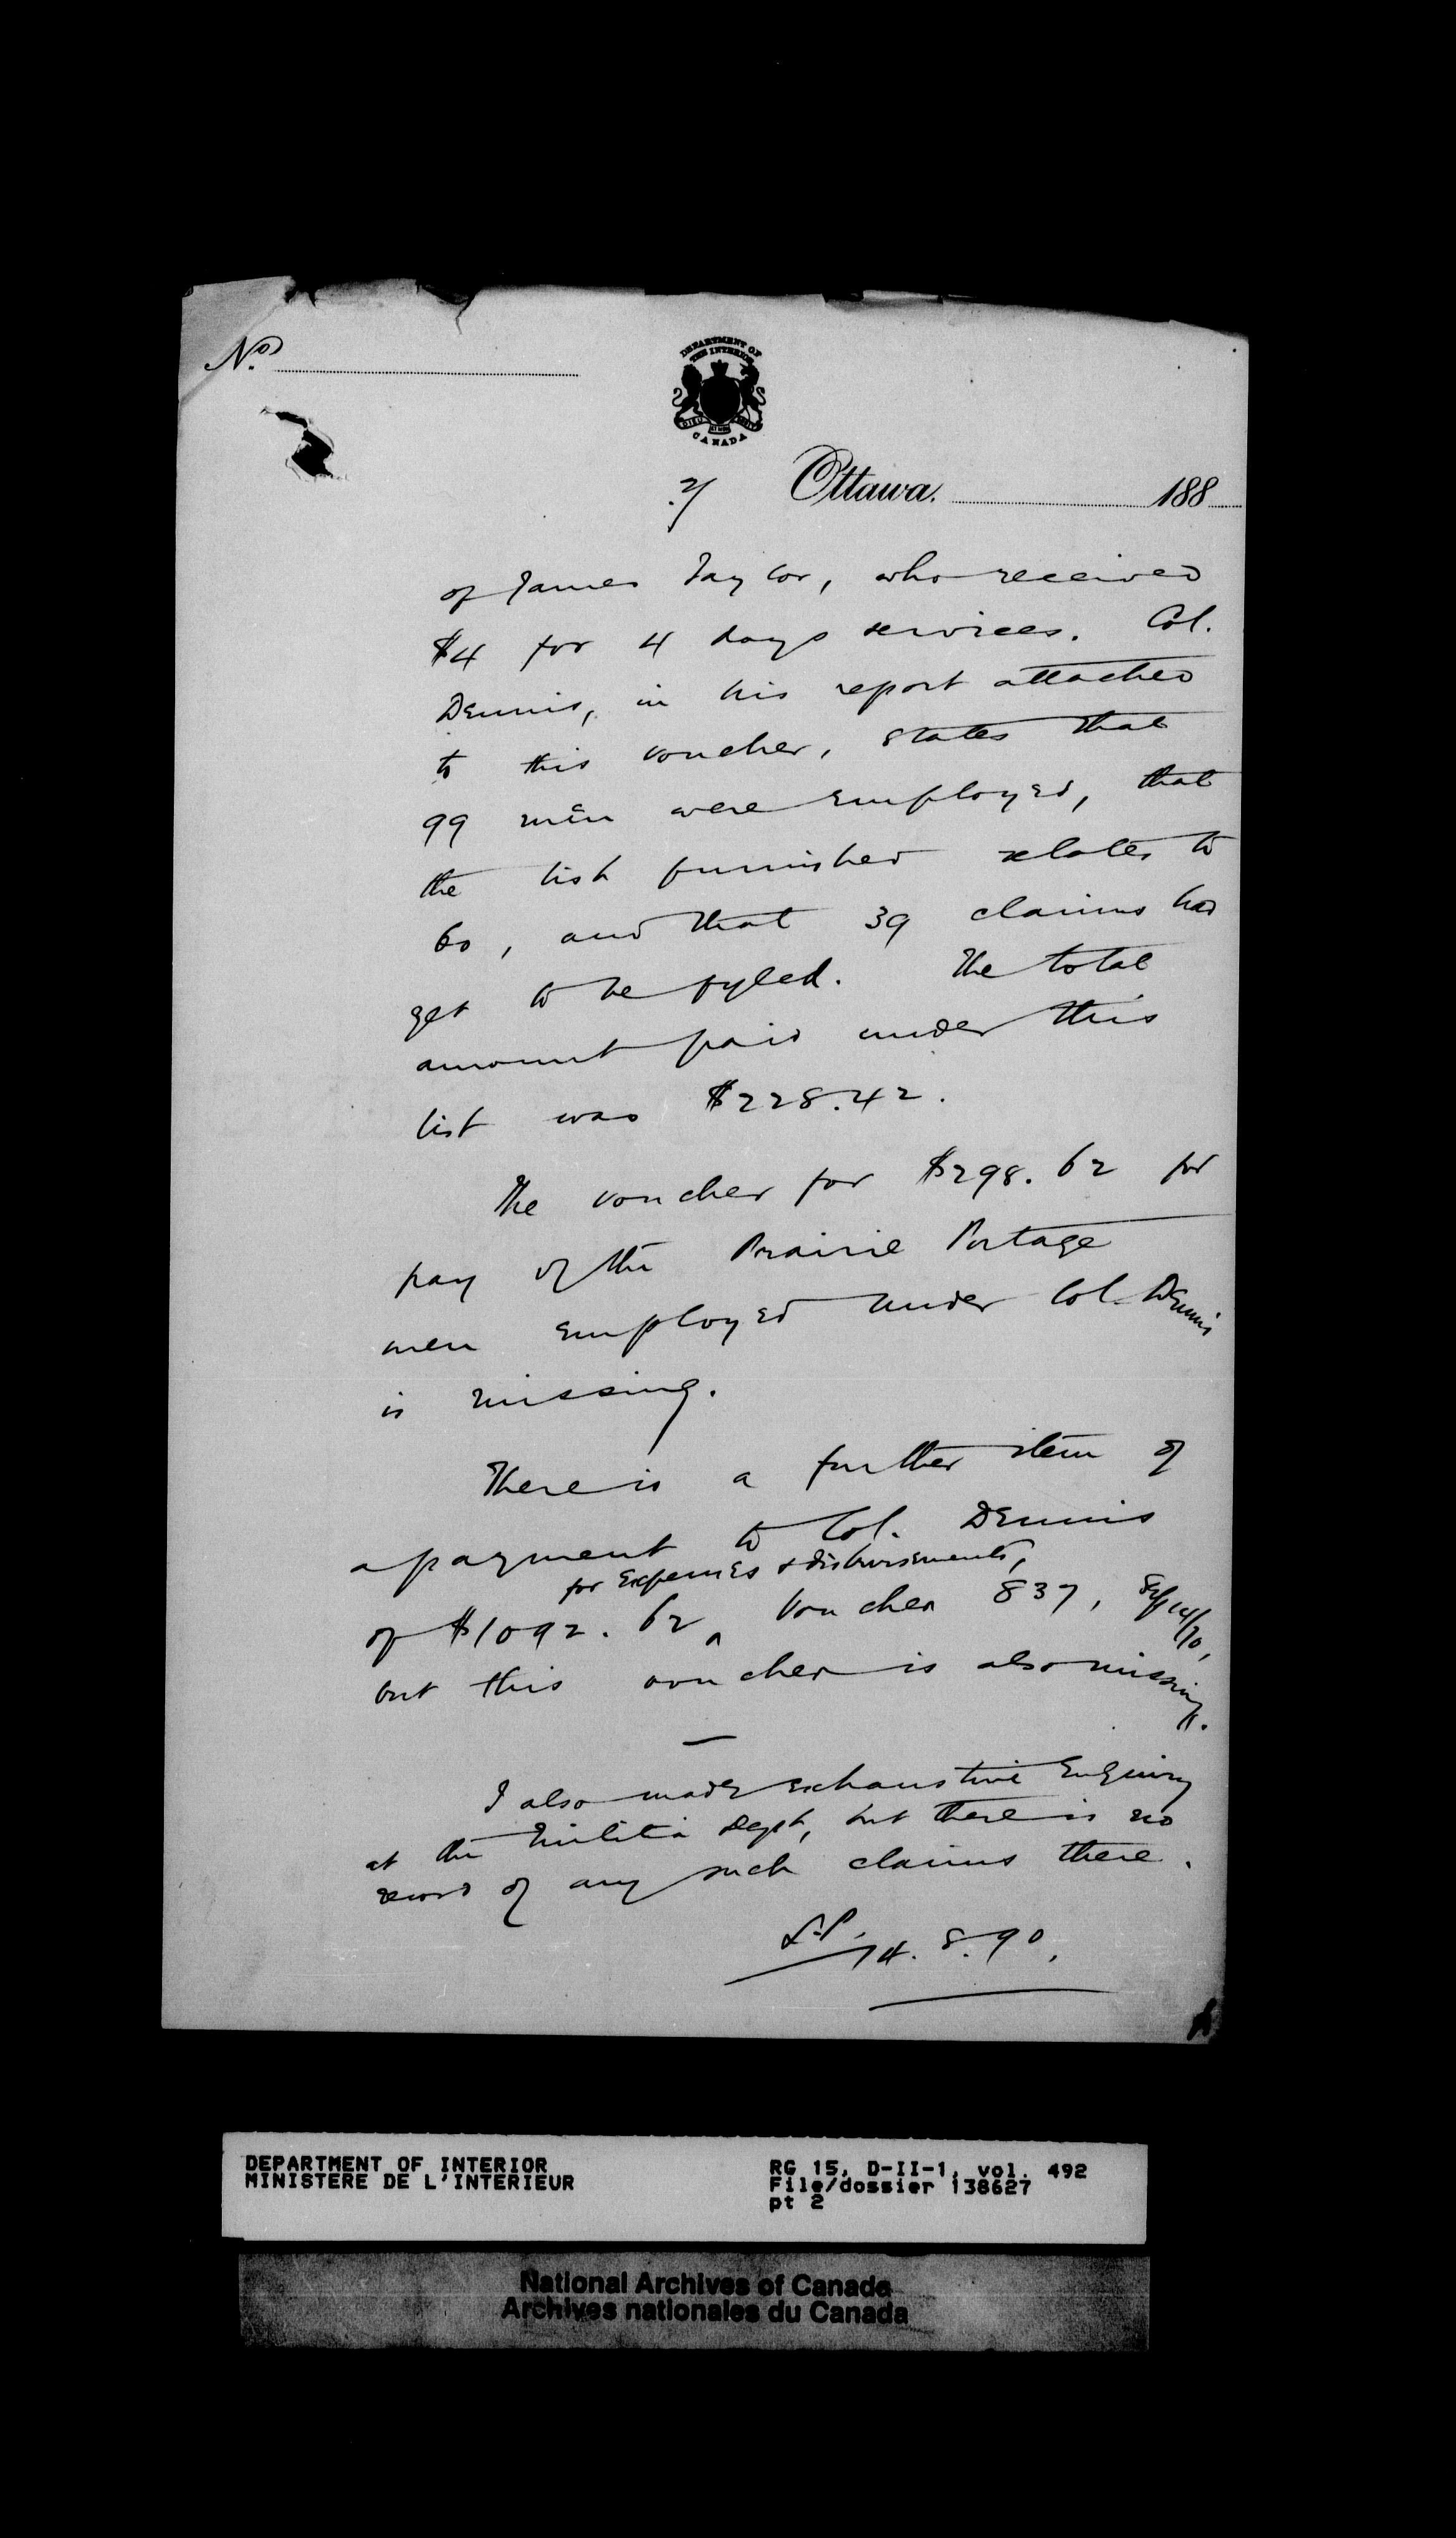 No.
DEPARTMENT OF
THE INTERIOR
CANADA
2/ Ottawa. 188
of James Taylor, who received
$4 for 4 days services. Col.
Dennis, in his report attached
to this voucher, states that
99 men were employed, that
the list furnished relates to
60, and that 39 claims had
yet to be fyled. The total
amount paid under this
list was $228.42.
The voucher for $298.62 for
pay of the Prairie Portage
men employed under Col. Dennis
is missing.
There is a further item of
a payment to Col. Dennis
for expenses & disbursements,
of $1092.62, Voucher 837, Sep 14/70,
but this voucher is also missing.
—
I also made exhaustive enquiry
at the Militia Dept, but there is no
record of any such claims there.
14.8.90.
DEPARTMENT OF INTERIOR
MINISTERE DE L'INTERIEUR
RG 15, D-II-1, vol. 492
File/dossier 138627
pt 2
National Archives of Canada
Archives nationales du Canada